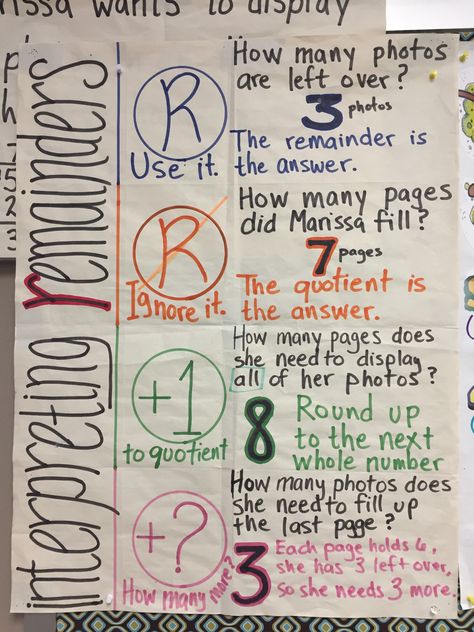 issa wants to display
interpreting remainders
R
Use it.
How many photos
are left over?
3 photos
The remainder is
the answer.
R
Ignore it.
How many pages
did Marissa fill?
7 pages
The quotient is
the answer.
+1
to quotient
How many pages does
she need to display
all of her photos?
8 Round up
to the next
whole number
+?
How many more?
How many photos does
she need to fill up
the last page?
3 Each page holds 6,
she has 3 left over,
so she needs 3 more.